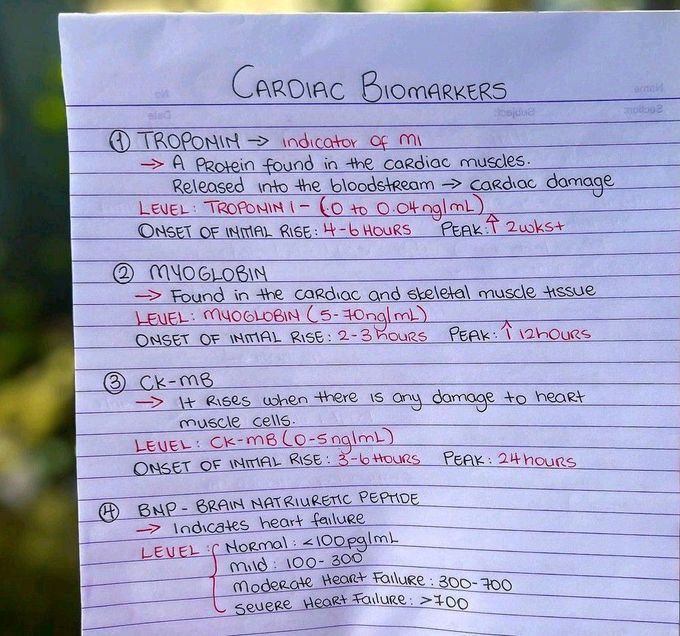 CARDIAC BIOMARKERS
① TROPONIN → indicator of MI
→ A Protein found in the cardiac muscles.
Released into the bloodstream → cardiac damage
LEVEL: TROPONIN I - (0 to 0.04ng/mL)
ONSET OF INITIAL RISE: 4-6 HOURS PEAK: ↑ 2wks+
② MYOGLOBIN
→ Found in the cardiac and skeletal muscle tissue
LEVEL: MYOGLOBIN (5-70ng/mL)
ONSET OF INITIAL RISE: 2-3 hours PEAK: ↑ 12hours
③ CK-MB
→ It rises when there is any damage to heart
muscle cells.
LEVEL: CK-MB (0-5ng/mL)
ONSET OF INITIAL RISE: 3-6 Hours PEAK: 24hours
④ BNP - BRAIN NATRIURETIC PEPTIDE
→ Indicates heart failure
LEVEL: { Normal: <100pg/mL
Mild: 100-300
Moderate Heart Failure: 300-700
Severe Heart Failure: >700